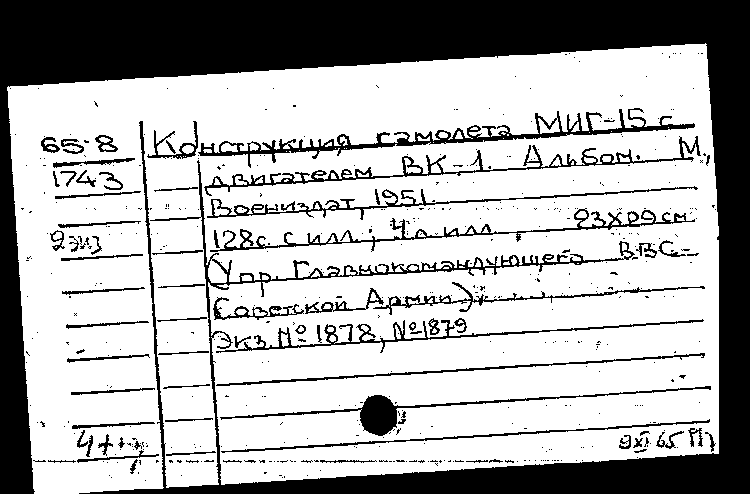 65-8 Конструкция самолета МИГ-15 с
1743 двигателем ВК-1. Альбом. М.,
Воениздат, 1951.
2 экз 128с. с илл.; 4 л илл. 23х29 см
(Упр. Главнокомандующего ВВС-
Советской Армии)
Экз. № 1878, № 1879
9 XI 65